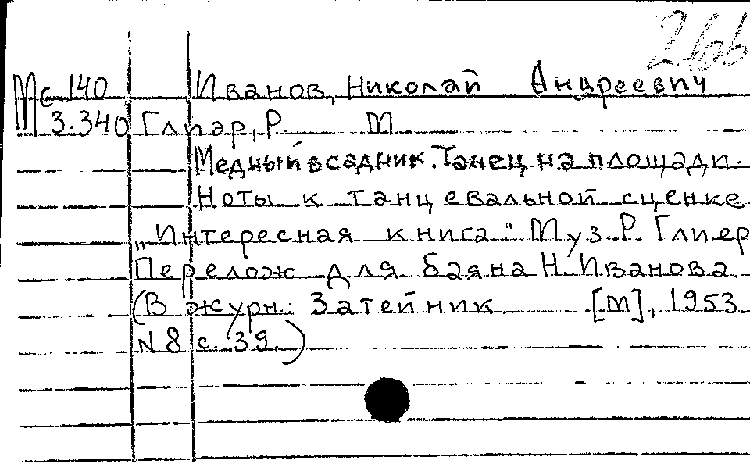 Мс 140 Иванов, Николай Андреевич
М 3.340 Глиэр, Р. М
Медный всадник. Танец на площади.
Ноты к танцевальной сценке
„Интересная книга" Муз. Р. Глиер
Перелож для баяна Н. Иванова
(В журн: Затейник [М], 1953
N 8 с. 39.)